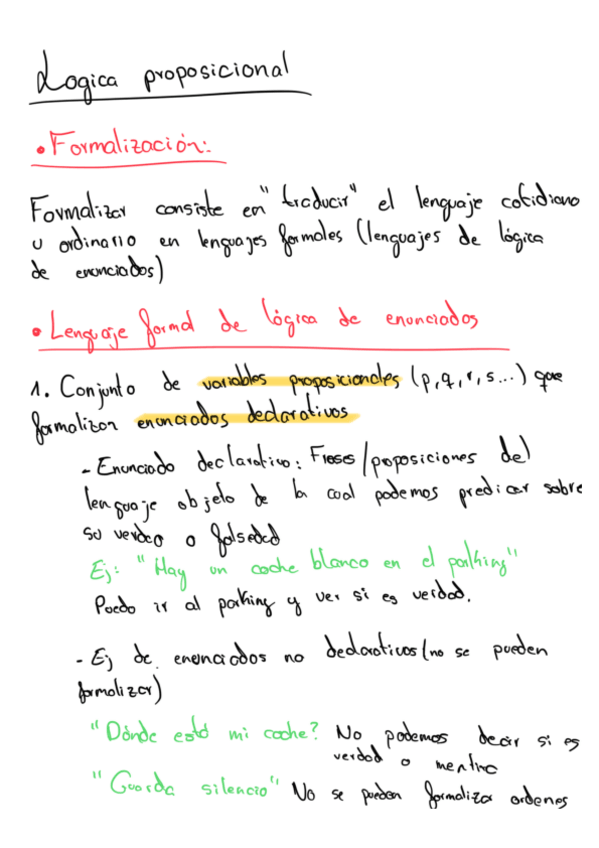 Logica proposicional
• Formalización:
Formalizar consiste en "traducir" el lenguaje cotidiano
u ordinario en lenguajes formales (lenguajes de lógica
de enunciados)
• Lenguaje formal de lógica de enunciados
1. Conjunto de variables proposicionales (p,q,r,s...) que
formalizan enunciados declarativos
- Enunciado declarativo: Frases/proposiciones del
lenguaje objeto de la cual podemos predicar sobre
su verdad o falsedad
Ej: "Hay un coche blanco en el parking"
Puedo ir al parking y ver si es verdad.
- Ej de enunciados no declarativos (no se pueden
formalizar)
"Dónde está mi coche? No podemos decir si es
verdad o mentira
"Guarda silencio" No se pueden formalizar ordenes